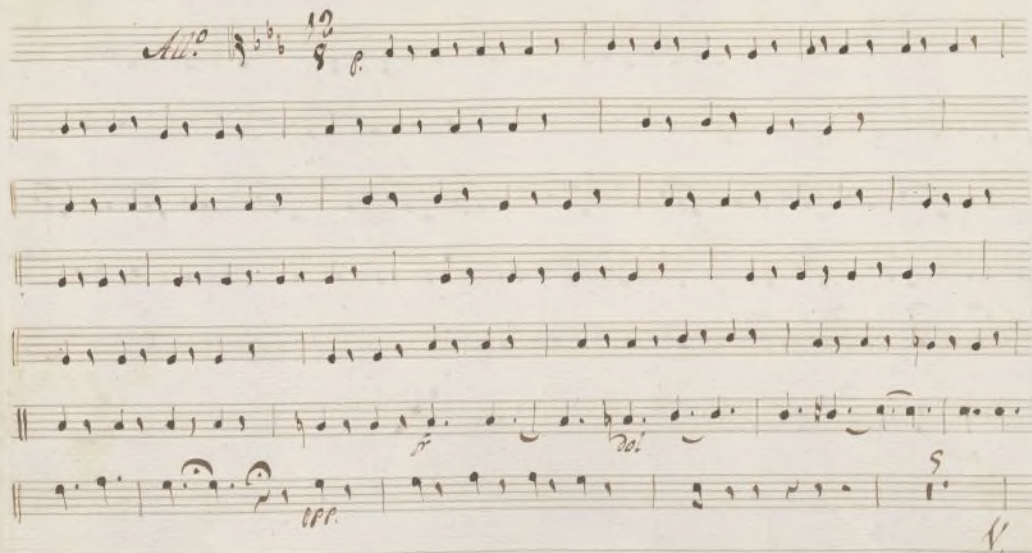 All.o 12
8 p.
fr dol
opp. 5
V.